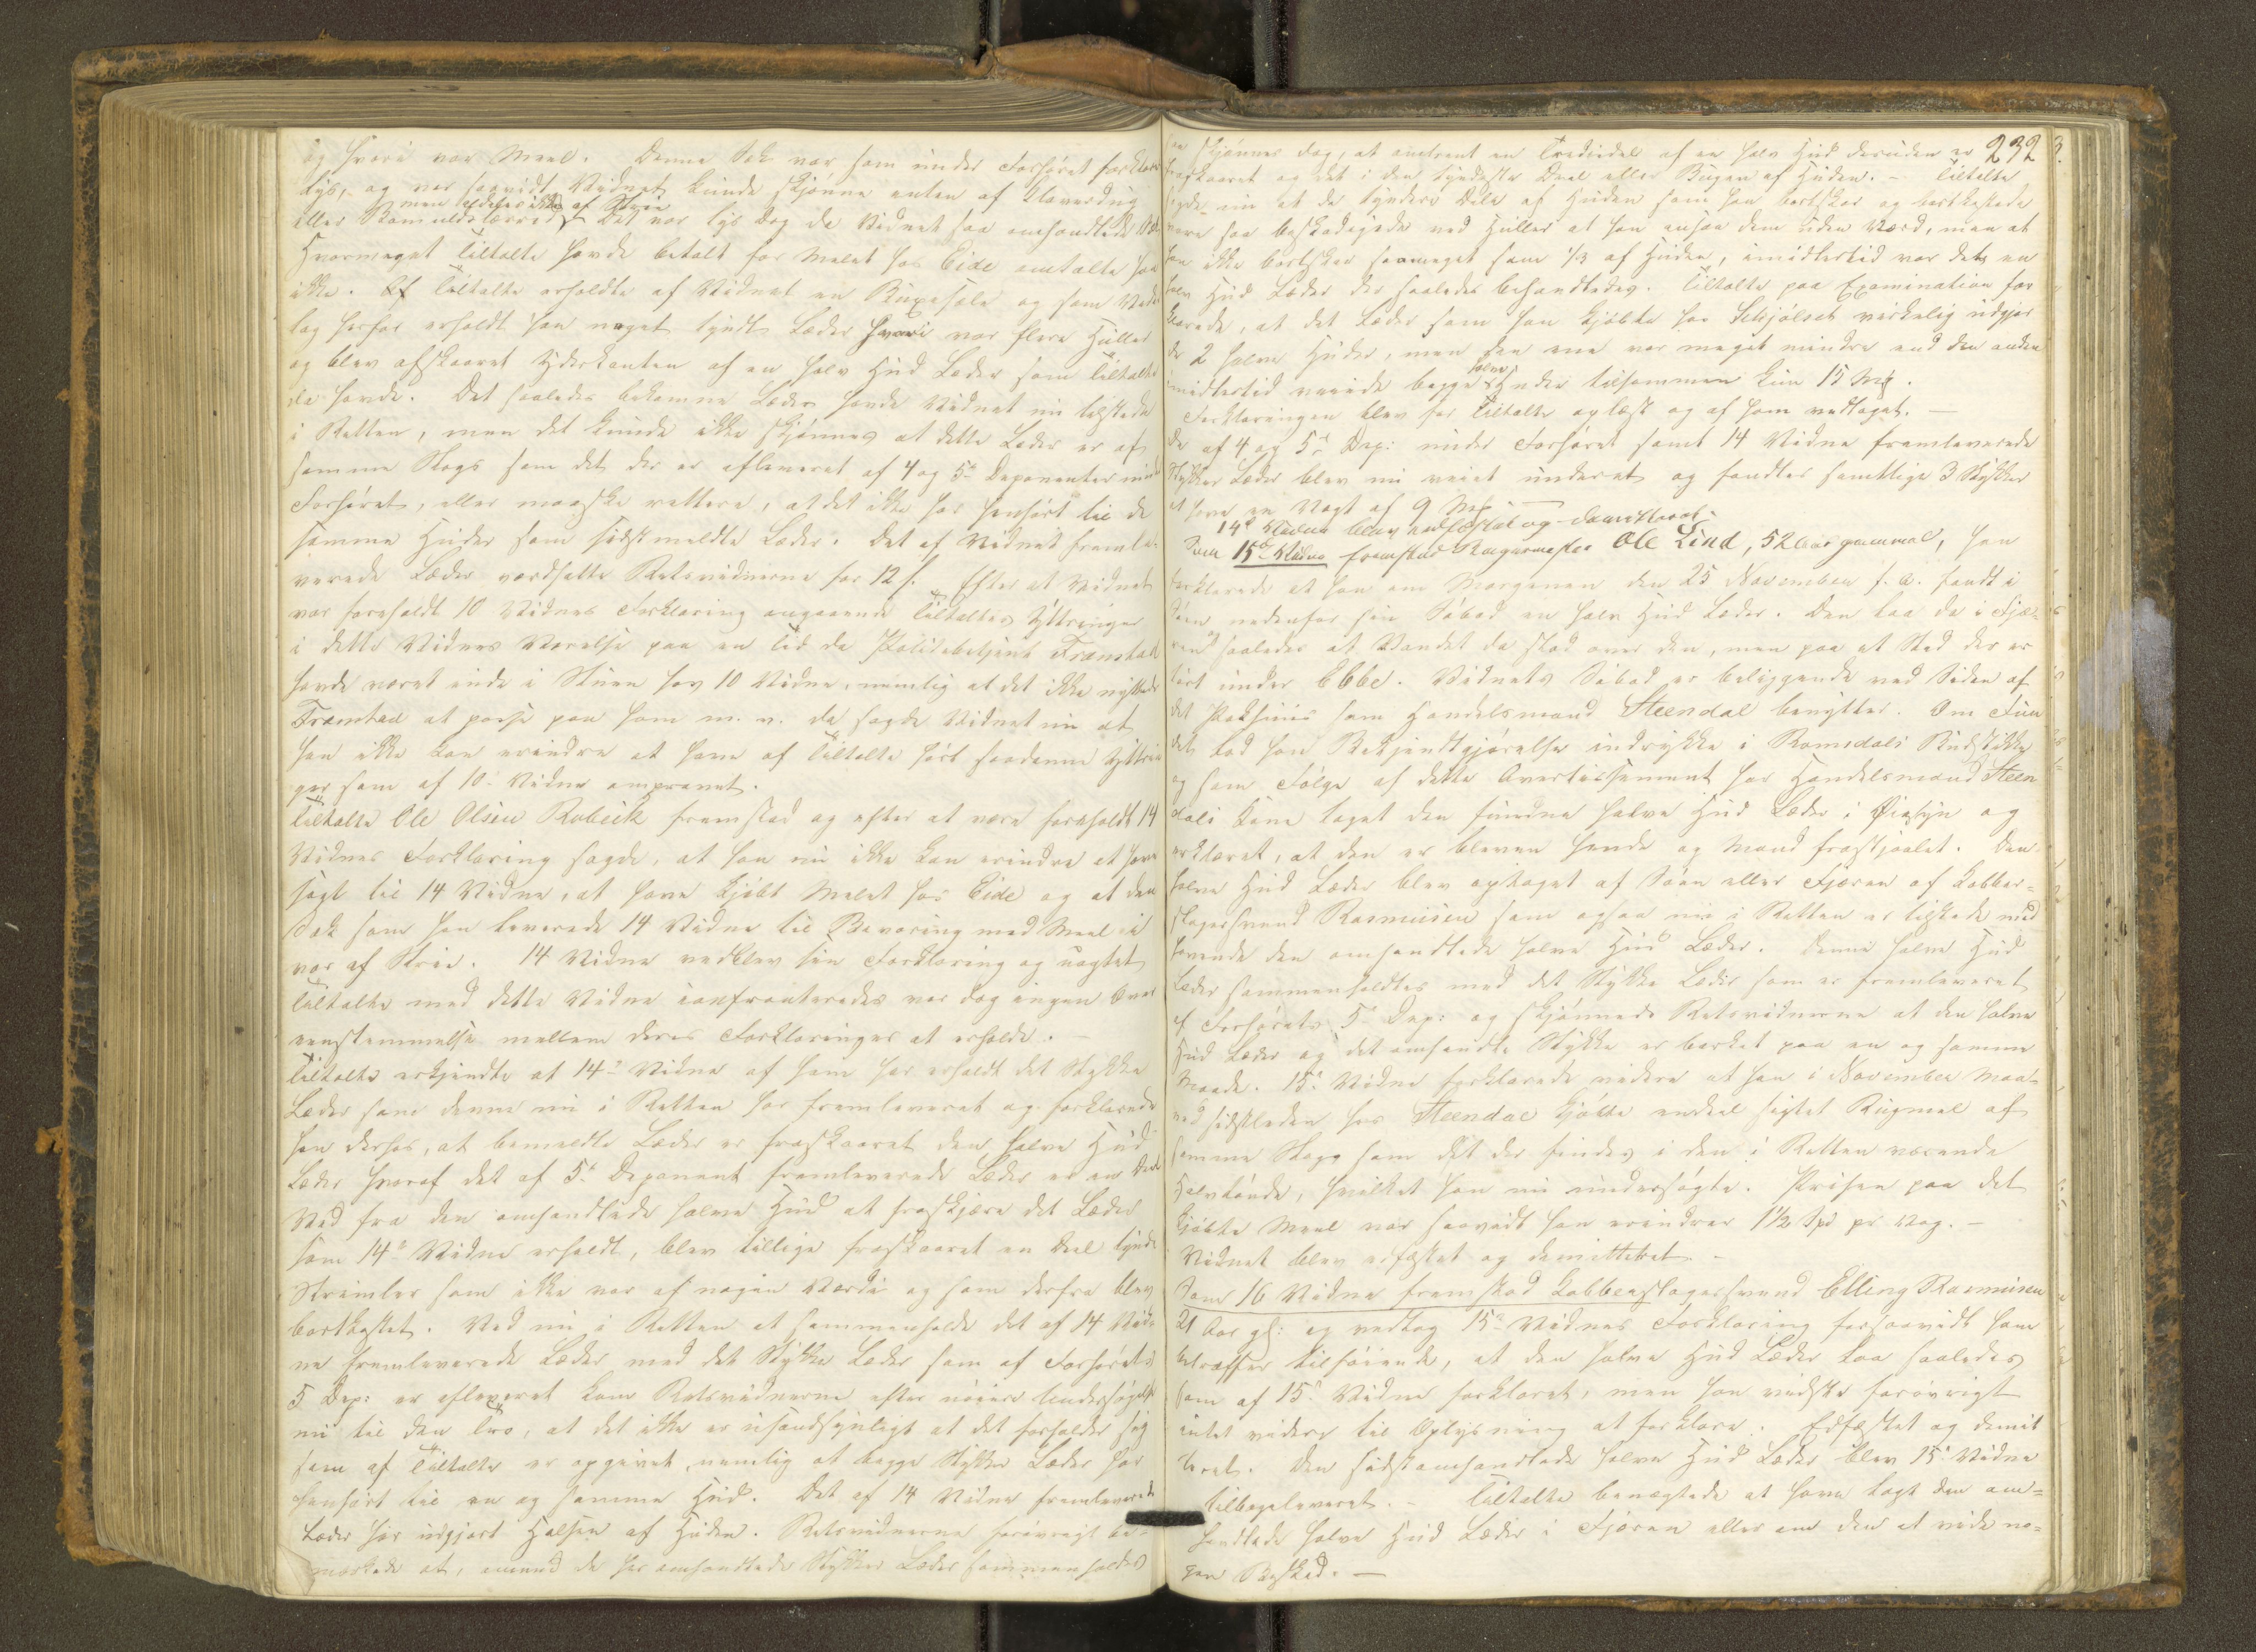 og hvori var Meel. Denne Sæk var som under Forhøret forklaret
lys, og var saavidt Vidnet kunde skjønne enten af Klaverdug
men ikke af Strie
eller Bomuldslærred. Det var lys Dag da Vidnet saa omhandlede Sæk.
Hvormeget Tiltalte havde betalt for Melet hos Eide omtalte han
ikke. Af Tiltalte erholdte af Vidnet en Buxesæle og som Veder
lag herfor erholdt han noget tyndt Læder hvori var flere Huller
og blev afskaaret Yderkanten af en halv Hud Læder som Tiltalte
da havde. Det saaledes bekomne Læder havde Vidnet nu tilstede
i Retten, men det kunde ikke skjønnes at dette Læder er af
samme Slags som det der er afleveret af 4 og 5te Deponenter under
Forhøret, eller maaske rettere, at det ikke har henhørt til de
samme Huder som sidstmeldte Læder. Det af Vidnet fremle-
verede Læder værdsatte Retsvidnerne for 12 s. Efter at Vidnet
var foreholdt 10 Vidnes Forklaring angaaende Tiltaltes Yttringer
i dette Vidnes Værelse paa en Tid da Politibetjent Tramstad
havde været inde i Stuen hos 10 Vidne, nemlig at det ikke nyttede
Framstad at passe paa ham m. v. da sagde Vidnet nu at
han ikke kan erindre at have af Tiltalte hørt saadanne Yttrin
ger som af 10 Vidne omprovet.
Tiltalte Ole Olsen Robeck fremstod og efter at være foreholdt 14
Vidnes Forklaring sagde, at han nu ikke kan erindre at have
sagt til 14 Vidne, at have kjøbt Melet hos Eide og at den
Sæk som han leverede 14 Vidne til Bevaring med Meel i
var af Strie. 14 Vidne vedblev sin Forklaring og uagtet
Tiltalte med dette Vidne confronteredes var dog ingen Over
eensstemmelse mellem deres Forklaringer at erholde. —
Tiltalte erkjendte at 14de Vidne af ham har erholdt det Stykke
Læder som denne nu i Retten har fremleveret og forklarede
han derhos, at bemeldte Læder er fraskaaret den halve Hud
Læder hvoraf det af 5te Deponent fremleverede Læder er en Deel
Ved fra den omhandlede halve Hud at fraskjære det Læder
som 14de Vidne erholdt, blev tillige fraskaaret en Deel tynde
Strimler som ikke var af nogen Værdi og som derfra blev
bortkastet. Ved nu i Retten at sammenholde det af 14 Vid-
ne fremleverede Læder med det Stykke Læder som af Forhørets
5 Dep: er afleveret kom Retsvidnerne efter nøiere Undersøgelse
nu til den Tro, at det ikke er usandsynligt at det forholder sig
som af Tiltalte er opgivet, nemlig at begge Stykker Læder har
henhørt til en og samme Hud. Det af 14 Vidne fremleverede
Læder har udgjort Halsen af Huden. Retsvidnerne forøvrigt be-
mærkede at, omend de her omhandlede Stykker Læder sammenholdes
232
skjønnes dog, at omtrent en Trediedel af en halv Hud desuden er
fraskaaret og det i den tyndeste Deel eller Bugen af Huden. — Tiltalte
sagde nu at de tyndere Dele af Huden som han bortskar og bortkastede
vare saa beskadigede ved Huller at han ansaa dem uden Værd, men at
han ikke bortskar saameget som 1/3 af Huden, imidlertid var det en
halv Hud Læder der saaledes behandledes. Tiltalte paa Examination for
klarede, at det Læder som han kjøbte hos Schjølset virkelig udgjor
de 2 halve Huder, men den ene var meget mindre end den anden
halve
imidlertid veiede begge Huder tilsammen kun 15 Mk.
Forklaringen blev for Tiltalte oplæst og af ham vedtaget. —
De af 4 og 5te Dep: under Forhøret samt 14 Vidne fremleverede
Stykker Læder blev nu veiet underet og fandtes samtlige 3 Stykker
at have en Vægt af 9 Mk —
14de Vidne blev edfæstet og demitteret.
Som 15de Vidne fremstod Bagermester Ole Lind, 52 Aar gammel, han
forklarede at han om Morgenen den 25 November f. A. fandt i
Søen nedenfor sin Søbod en halv Hud Læder. Den laa da i Fjæ-
ren saaledes at Vandet da stod over den, men paa et Sted der er
tørt under Ebbe. Vidnets Søbod er beliggende ved Siden af
det Pakhuus som Handelsmand Steendal benytter. Om Fun
det lod han Bekjendtgjørelse indrykke i Romsdals Budstikke
og som Følge af dette Avertissement har Handelsmand Steen
dals Kone taget den fundne halve Hud Læder i Øiesyn og
erklæret, at den er bleven hende og Mand frastjaalet. Den
halve Hud Læder blev optaget af Søen eller Fjæren af Kobber-
slagersvend Rasmussen som ogsaa nu i Retten er tilstede med
havende den omhandlede halve Hud Læder. Denne halve Hud
Læder sammenholdtes med det Stykke Læder som er fremleveret
af Forhørets 5te Dep: og skjønnede Retsvidnerne at den halve
Hud Læder og det omhandlede Stykke er barket paa en og samme
Maade. 15de Vidne forklarede videre at han i November Maa-
ned sidstleden hos Steendal kjøbte endeel sigtet Rugmel af
samme Slags som det der findes i den i Retten værende
Halvtønde, hvilket han nu undersøgte. Prisen paa det
kjøbte Meel var saavidt han erindrer 1 1/2 Spd pr Vog. —
Vidnet blev edfæstet og demitteret. —
Som 16 Vidne fremstod Kobberslagersvend Elling Rasmussen
21 Aar gl: og vedtog 15de Vidnes Forklaring forsaavidt ham
betræffer tilføiende, at den halve Hud Læder laa saaledes
som af 15de Vidne forklaret, men han vidste forøvrigt
intet videre til Oplysning at forklare. Edfæstet og demit
teret. Den sidstomhandlede halve Hud Læder blev 15de Vidne
tilbageleveret. — Tiltalte benægtede at have lagt den om-
handlede halve Hud Læder i Fjæren eller om den at vide no-
gen Besked. —